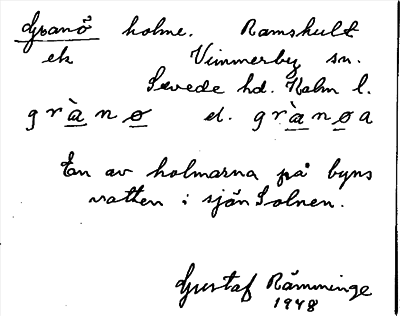 Granö holme. Ramshult
ek Vimmerby sn.
Sevede hd. Kalm l.
gràno el. grànoa
En av holmarna på byns
vatten i sjön Solnen.
Gustaf Rämminge
1948